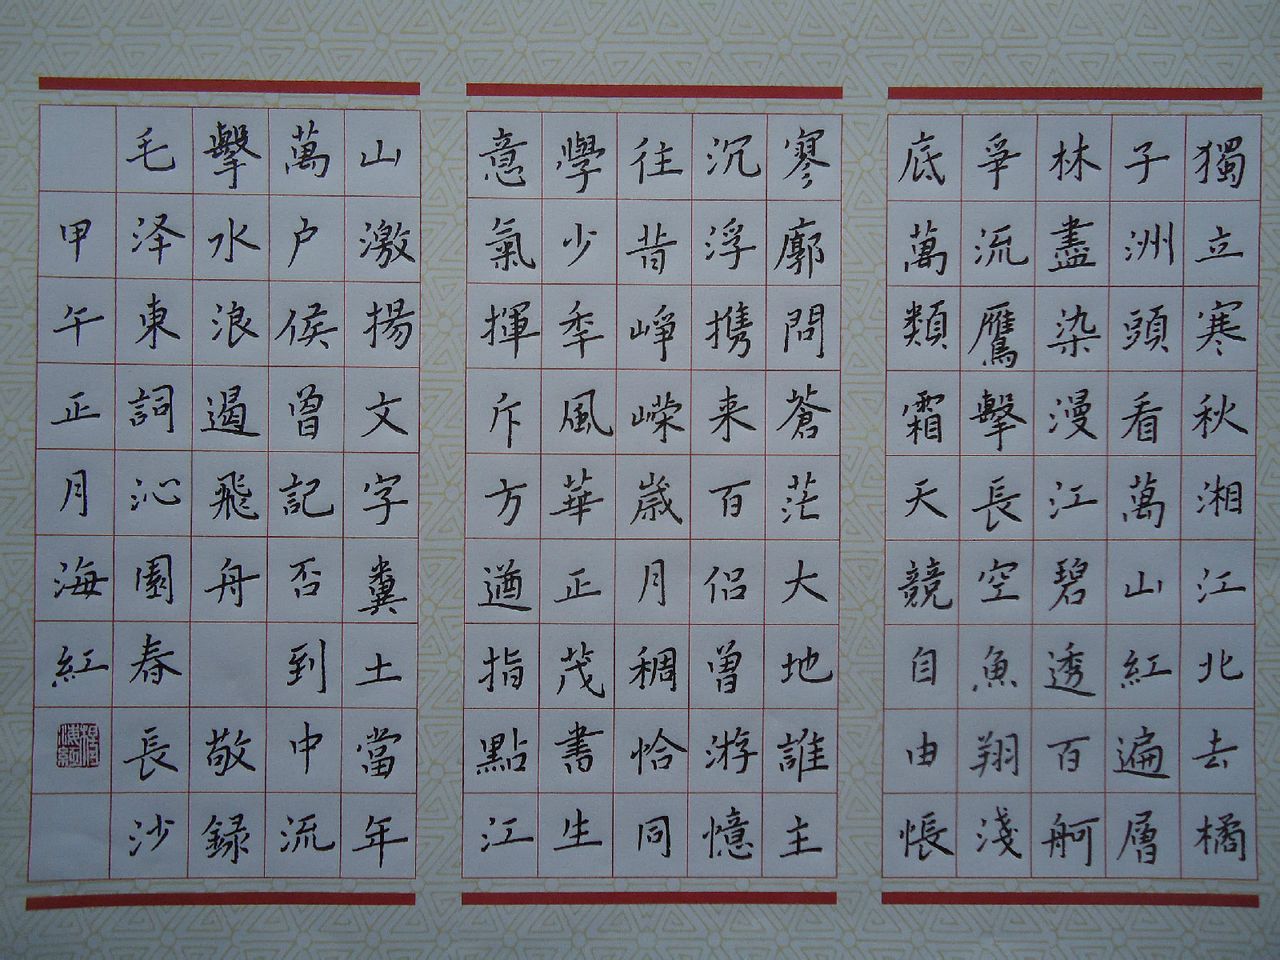 獨立寒秋湘江北去橘
子洲頭看萬山紅遍層
林盡染漫江碧透百舸
爭流鷹擊長空魚翔淺
底萬類霜天競自由悵
寥廓問蒼茫大地誰主
沉浮携来百侣曾游憶
往昔崢嶸歲月稠恰同
學少季風華正茂書生
意氣揮斥方遒指點江
山激揚文字糞土當年
萬户侯曾記否到中流
擊水浪遏飛舟 敬録
毛泽東詞沁園春長沙
甲午正月海紅